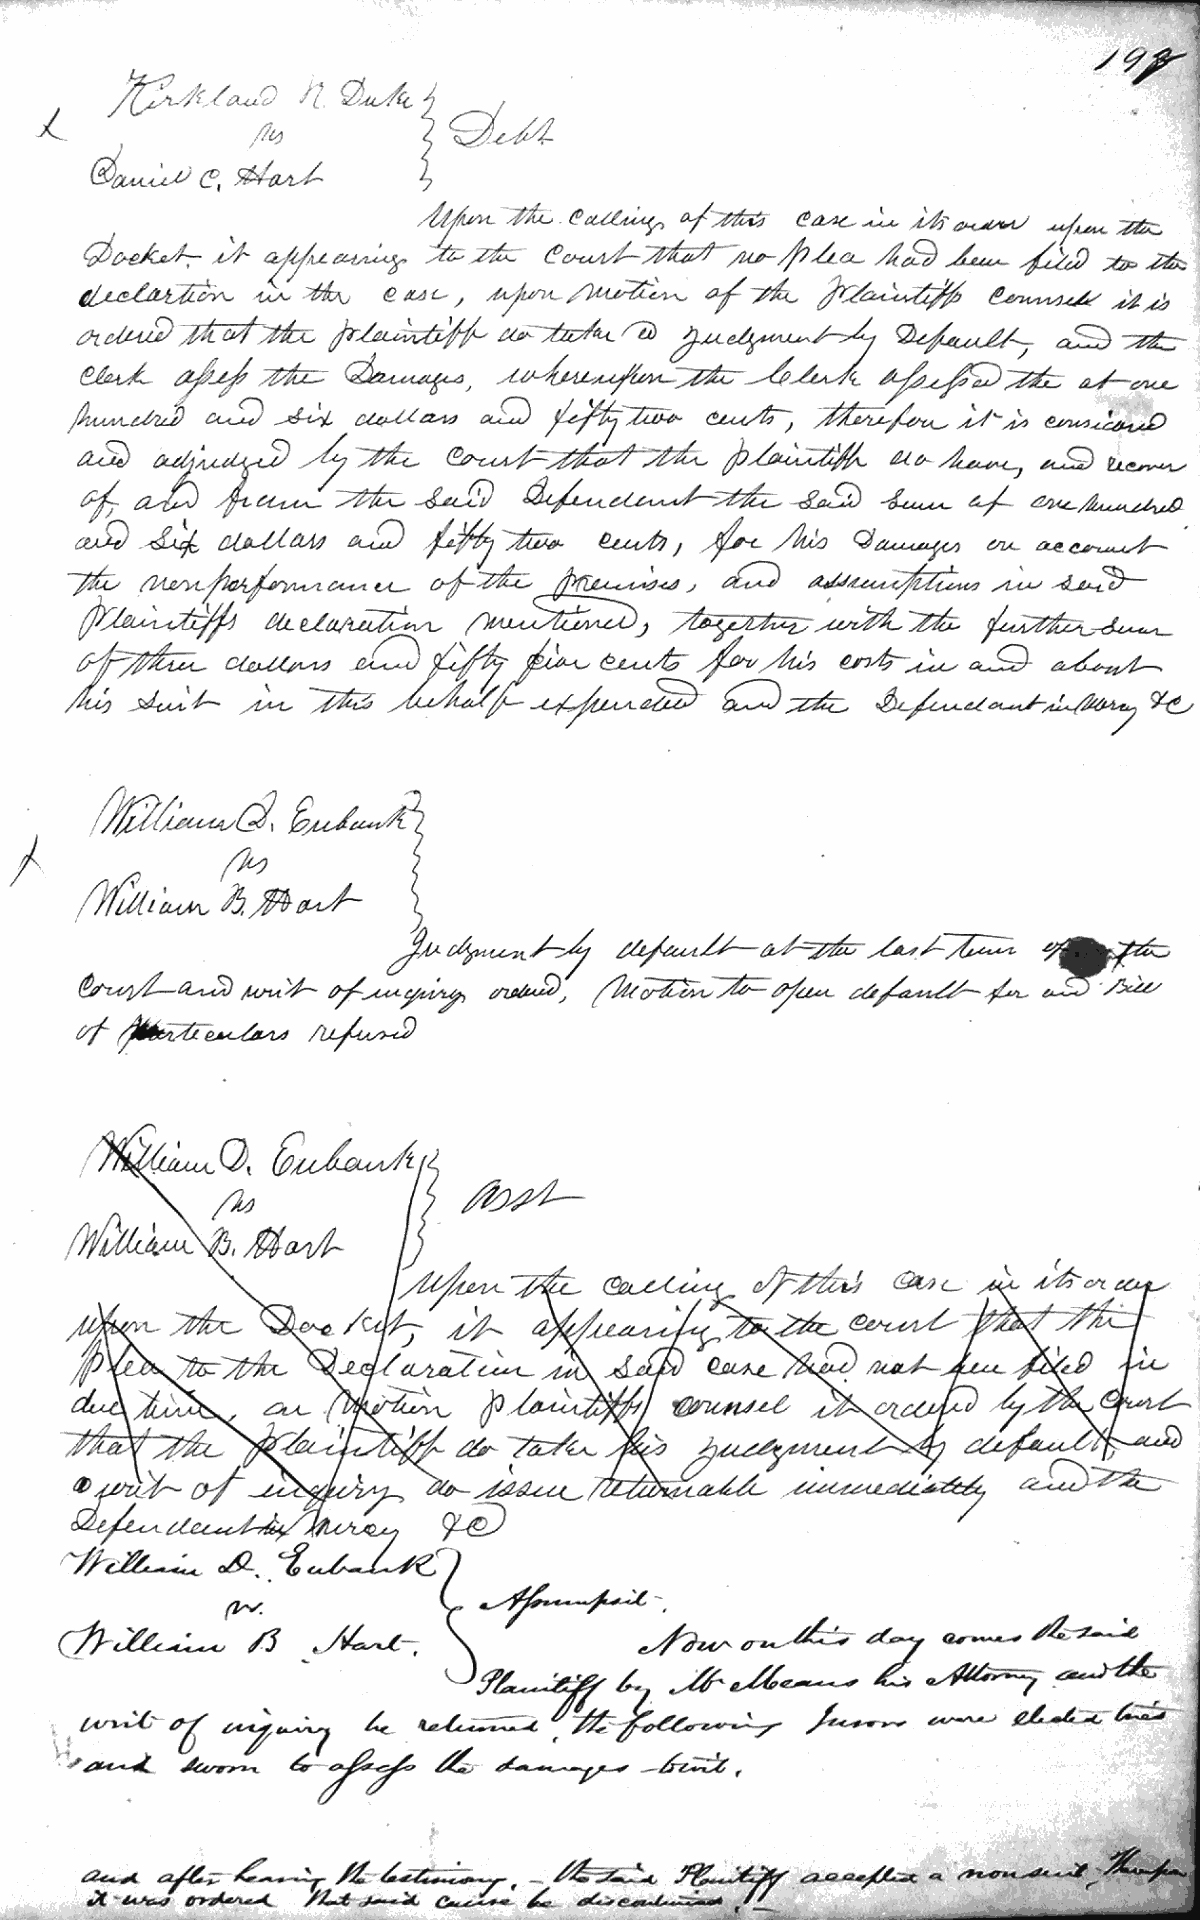 198
Kirkland R. Duke
x vs Debt
Daniel C. Hart
Upon the calling of this case in its order upon the
Docket, it appearing to the Court that no Plea had been filed to the
declartion in the case, upon motion of the Plaintiffs counsel it is
ordered that the plaintiff do take a Judgment by Default, and the
Clerk assess the Damages, whereupon the Clerk assessed the at one
hundred and six dollars and fifty two cents, therefore it is considered
and adjudged by the Court that the plaintiff do have, and recover
of, and from the said Defendant the said sum of one hundred
and six dollars and fifty two cents, for his Damages on account
the nonperformance of the premises, and assumptions in said
Plaintiffs declaration mentioned, together with the further sum
of three dollars and fifty five cents for his costs in and about
his suit in this behalf expended and the Defendant in Mercy &C
William D. Eubank
x vs
William B. Hart
Judgment by default at the last term of the
court and writ of inquiry ordered, Motion to open default for and Bill
of particulars refused
William D. Eubank
vs Asst
William B. Hart
Upon the calling of this case in its order
upon the Docket, it appearing to the court that the
plea to the Declaration in said case had not been filed in
due time, on Motion Plaintiffs counsel it ordered by the Court
that the Plaintiff do take his Judgment by default, and
a writ of inquiry do issue returnable immediately and the
Defendant in Mercy &C
William D. Eubank
vs. Assumpsit.
William B Hart.
Now on this day comes the said
Plaintiff by Mr Means his Attorney and the
writ of inquiry be returned, the following Jurors were elected tried
and sworn to assess the damages towit.
and after hearing the testimony, - the said Plaintiff accepted a nonsuit, Thereupon
it was ordered that said cause be discontinued.